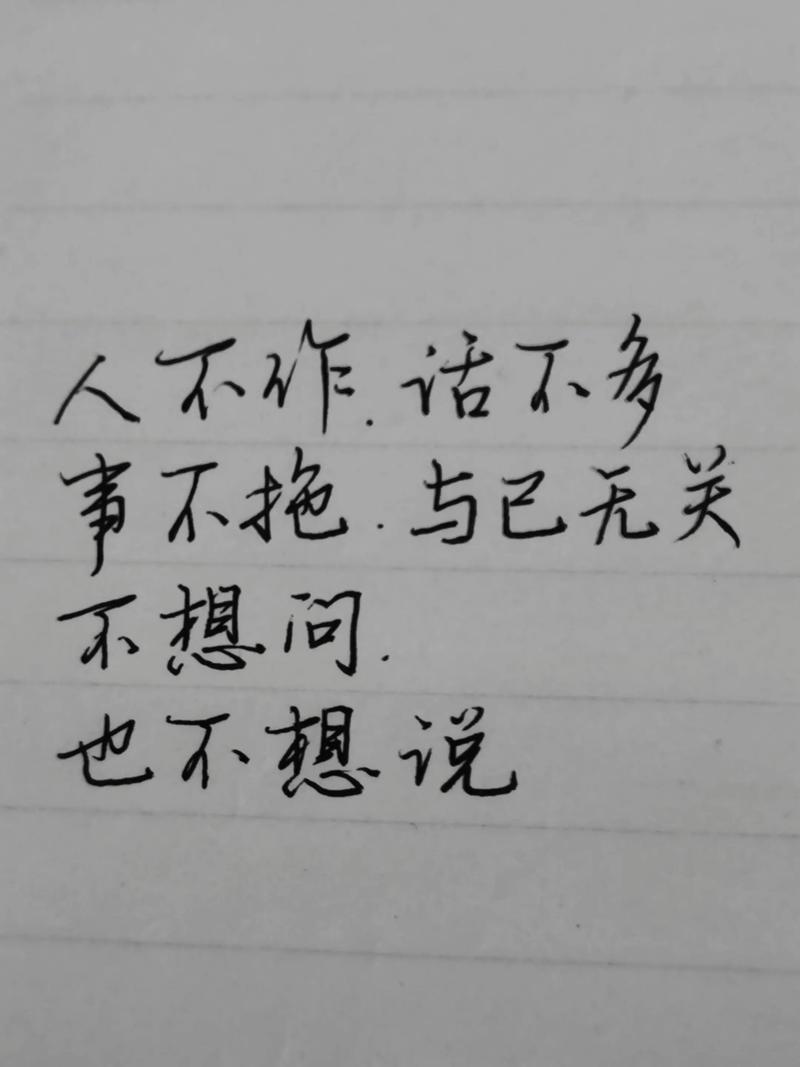 人不作.话不多
事不拖.与已无关
不想问.
也不想说